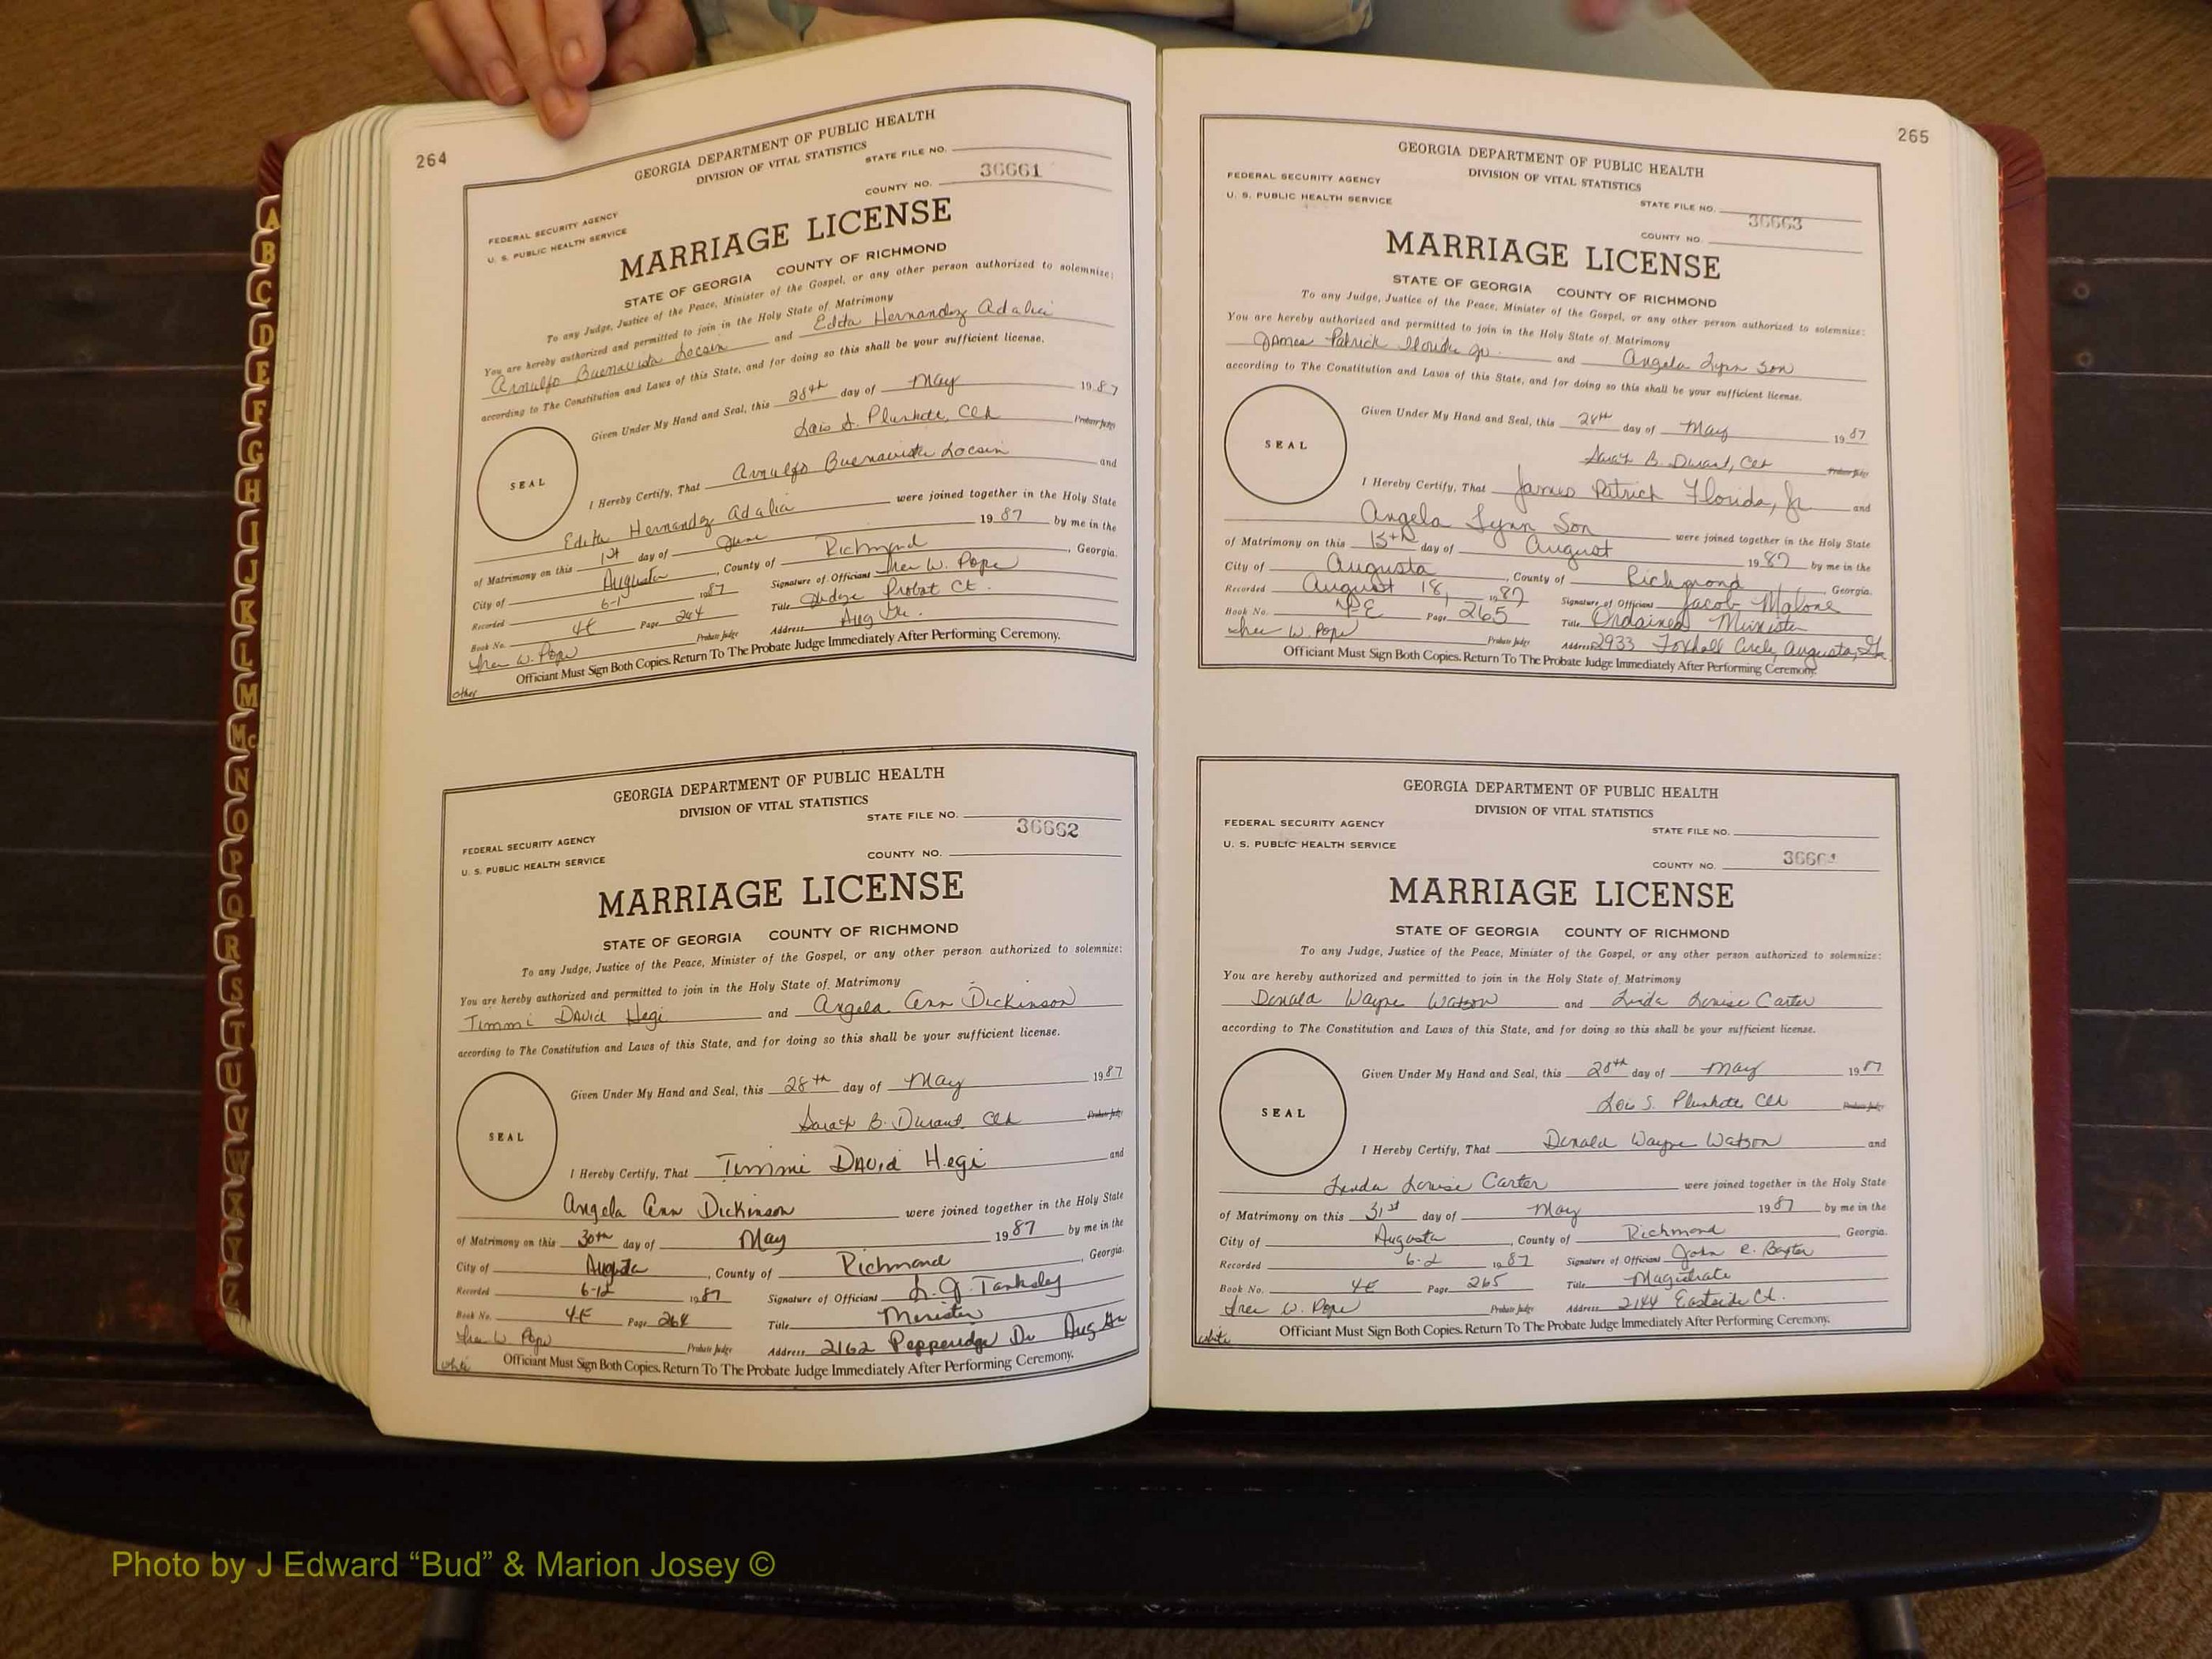 264
GEORGIA DEPARTMENT OF PUBLIC HEALTH
DIVISION OF VITAL STATISTICS
STATE FILE NO.
36661
COUNTY NO.
FEDERAL SECURITY AGENCY
U. S. PUBLIC HEALTH SERVICE
MARRIAGE LICENSE
STATE OF GEORGIA COUNTY OF RICHMOND
To any Judge, Justice of the Peace, Minister of the Gospel, or any other person authorized to solemnize:
You are hereby authorized and permitted to join in the Holy State of Matrimony
Arnulfo Buenavista Locsin and Edita Hernandez Adalia
according to The Constitution and Laws of this State, and for doing so this shall be your sufficient license.
Given Under My Hand and Seal, this 28th day of May 1987
Lois S. Plunkett, Clk Probate Judge
SEAL
I Hereby Certify, That Arnulfo Buenavista Locsin and
Edita Hernandez Adalia were joined together in the Holy State
of Matrimony on this 1st day of June 1987 by me in the
City of Augusta, County of Richmond, Georgia.
Recorded 6-1 1987 Signature of Officiant W. Pope
Book No. 4E Page 264 Title Judge Probat Ct.
W. Pope Probate Judge Address Aug Ga.
Officiant Must Sign Both Copies. Return To The Probate Judge Immediately After Performing Ceremony.
other
GEORGIA DEPARTMENT OF PUBLIC HEALTH
DIVISION OF VITAL STATISTICS
STATE FILE NO.
36662
FEDERAL SECURITY AGENCY
COUNTY NO.
U. S. PUBLIC HEALTH SERVICE
MARRIAGE LICENSE
STATE OF GEORGIA COUNTY OF RICHMOND
To any Judge, Justice of the Peace, Minister of the Gospel, or any other person authorized to solemnize:
You are hereby authorized and permitted to join in the Holy State of Matrimony
Timmi David Hegi and Angela Ann Dickinson
according to The Constitution and Laws of this State, and for doing so this shall be your sufficient license.
Given Under My Hand and Seal, this 28th day of May 1987
Sarah B. Durant, Clk Probate Judge
SEAL
I Hereby Certify, That Timmi David Hegi and
Angela Ann Dickinson were joined together in the Holy State
of Matrimony on this 30th day of May 1987 by me in the
City of Augusta, County of Richmond, Georgia.
Recorded 6-12 1987 Signature of Officiant L. G. Tanksley
Book No. 4E Page 264 Title Minister
W. Pope Probate Judge Address 2162 Pepperidge Dr Aug Ga
white Officiant Must Sign Both Copies. Return To The Probate Judge Immediately After Performing Ceremony.
265
GEORGIA DEPARTMENT OF PUBLIC HEALTH
DIVISION OF VITAL STATISTICS
FEDERAL SECURITY AGENCY
U. S. PUBLIC HEALTH SERVICE
STATE FILE NO.
36663
COUNTY NO.
MARRIAGE LICENSE
STATE OF GEORGIA COUNTY OF RICHMOND
To any Judge, Justice of the Peace, Minister of the Gospel, or any other person authorized to solemnize:
You are hereby authorized and permitted to join in the Holy State of Matrimony
James Patrick Florida Jr. and Angela Lynn Son
according to The Constitution and Laws of this State, and for doing so this shall be your sufficient license.
Given Under My Hand and Seal, this 28th day of May 1987
Sarah B. Durant, Clk Probate Judge
SEAL
I Hereby Certify, That James Patrick Florida, Jr and
Angela Lynn Son were joined together in the Holy State
of Matrimony on this 15th day of August 1987 by me in the
City of Augusta, County of Richmond, Georgia.
Recorded August 18, 1987 Signature of Officiant Jacob Malone
Book No. 4E Page 265 Title Ordained Minister
W. Pope Probate Judge Address 2933 Foxhall Circle, Augusta, Ga.
Officiant Must Sign Both Copies. Return To The Probate Judge Immediately After Performing Ceremony.
GEORGIA DEPARTMENT OF PUBLIC HEALTH
DIVISION OF VITAL STATISTICS
FEDERAL SECURITY AGENCY
STATE FILE NO.
U. S. PUBLIC HEALTH SERVICE
COUNTY NO. 36664
MARRIAGE LICENSE
STATE OF GEORGIA COUNTY OF RICHMOND
To any Judge, Justice of the Peace, Minister of the Gospel, or any other person authorized to solemnize:
You are hereby authorized and permitted to join in the Holy State of Matrimony
Donald Wayne Watson and Linda Louise Carter
according to The Constitution and Laws of this State, and for doing so this shall be your sufficient license.
Given Under My Hand and Seal, this 28th day of May 1987
Lois S. Plunkett, Clk Probate Judge
SEAL
I Hereby Certify, That Donald Wayne Watson and
Linda Louise Carter were joined together in the Holy State
of Matrimony on this 31st day of May 1987 by me in the
City of Augusta, County of Richmond, Georgia.
Recorded 6-2 1987 Signature of Officiant John R. Baxter
Book No. 4E Page 265 Title Magistrate
W. Pope Probate Judge Address 2144 Eastside Ct.
white Officiant Must Sign Both Copies. Return To The Probate Judge Immediately After Performing Ceremony.
A
B
C
D
E
F
G
H
I
J
K
L
M
Mc
N
O
P
Q
R
S
T
U
V
W
X
Y
Z
Photo by J Edward “Bud” & Marion Josey ©